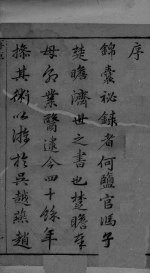 序
錦囊祕録者何鹽官馮子
楚瞻濟世之書也楚瞻奉
母命業醫逮今四十餘年
操其術以游於吳越燕趙